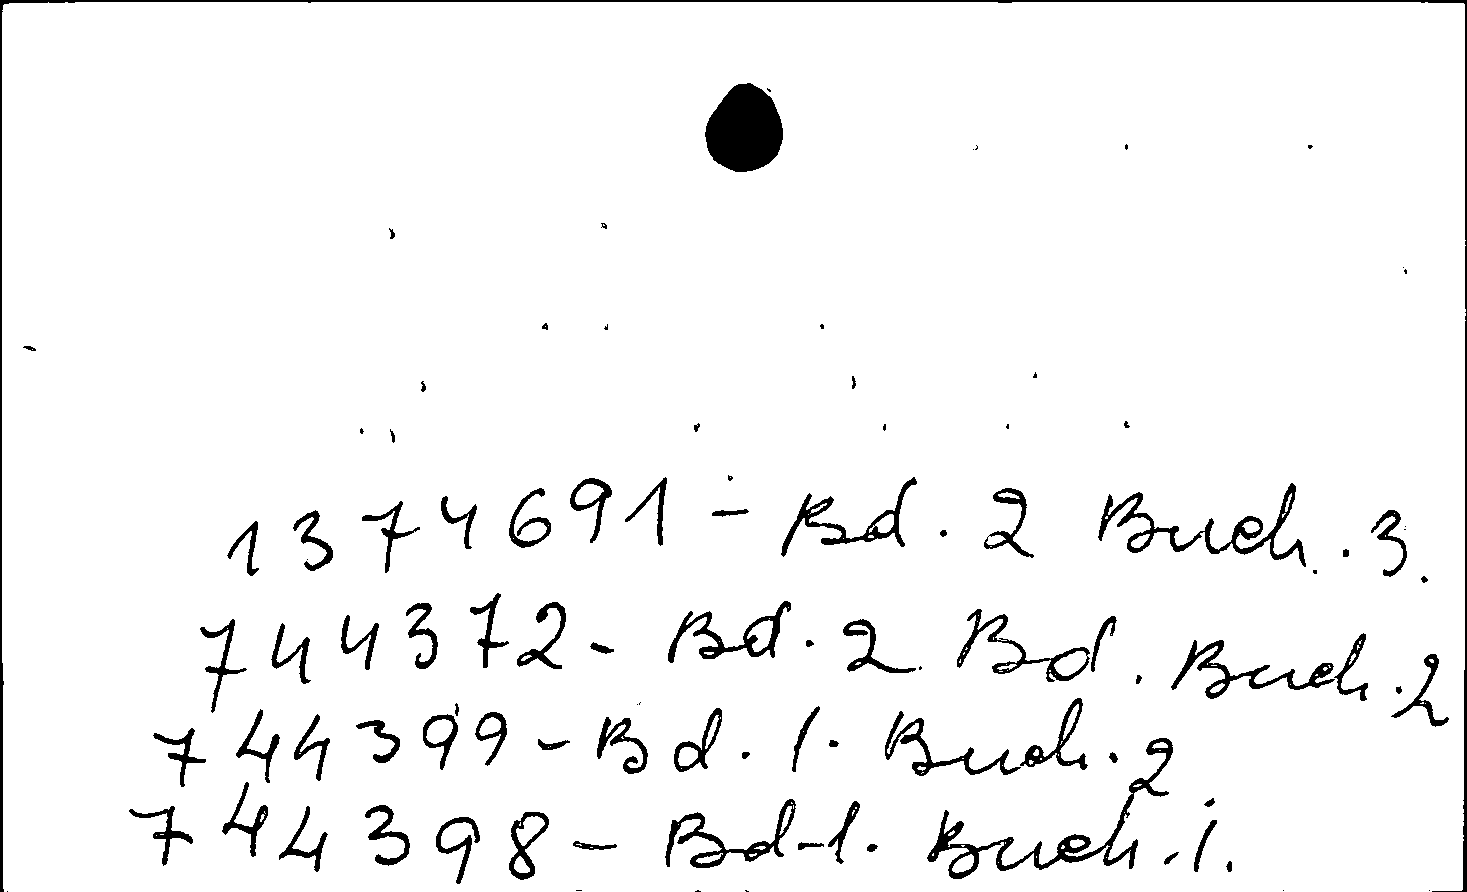 1374691 - Bd. 2 Buch. 3.
744372 - Bd. 2 Bd. Buch. 2
744399 - Bd. 1. Buch. 2
744398 - Bd-1. Buch. 1.